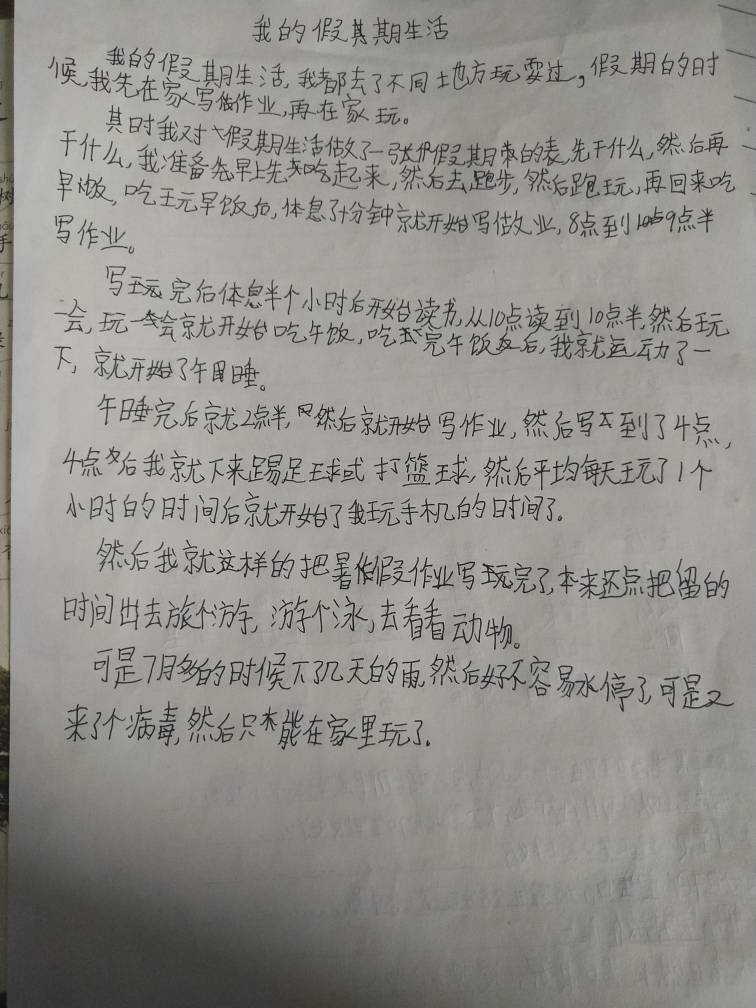 我的假其期生活
我的假其期生活,我都去了不同地方玩耍过,假期的时
候,我先在家写做作业,再在家玩。
其时我对大假期生活做了一张假期的表,先干什么,然后再
干什么,我准备先早上先起来,然后去跑步,然后跑玩,再回来吃
早饭,吃王元早饭后,体息了十分钟就开始写做业,8点到9点半
写作业。
写玩完后体息半个小时后开始读书,从10点读到10点半,然后玩
一会,玩一会就开始吃午饭,吃完午饭后,我就运动了一
下,就开始了午睡。
午睡完后就2点半,然后就开始写作业,然后写到了4点,
4点多后我就下来踢足球或打篮球,然后平均每天玩了1个
小时的时间后就开始了我玩手机的时间了。
然后我就这样的把暑假作业写玩完了,本来还点把留的
时间出去旅个游,游个泳,去看看动物。
可是7月多的时候下了几天的雨,然后好不容易水停了,可是又
来了个病毒,然后只能在家里玩了.